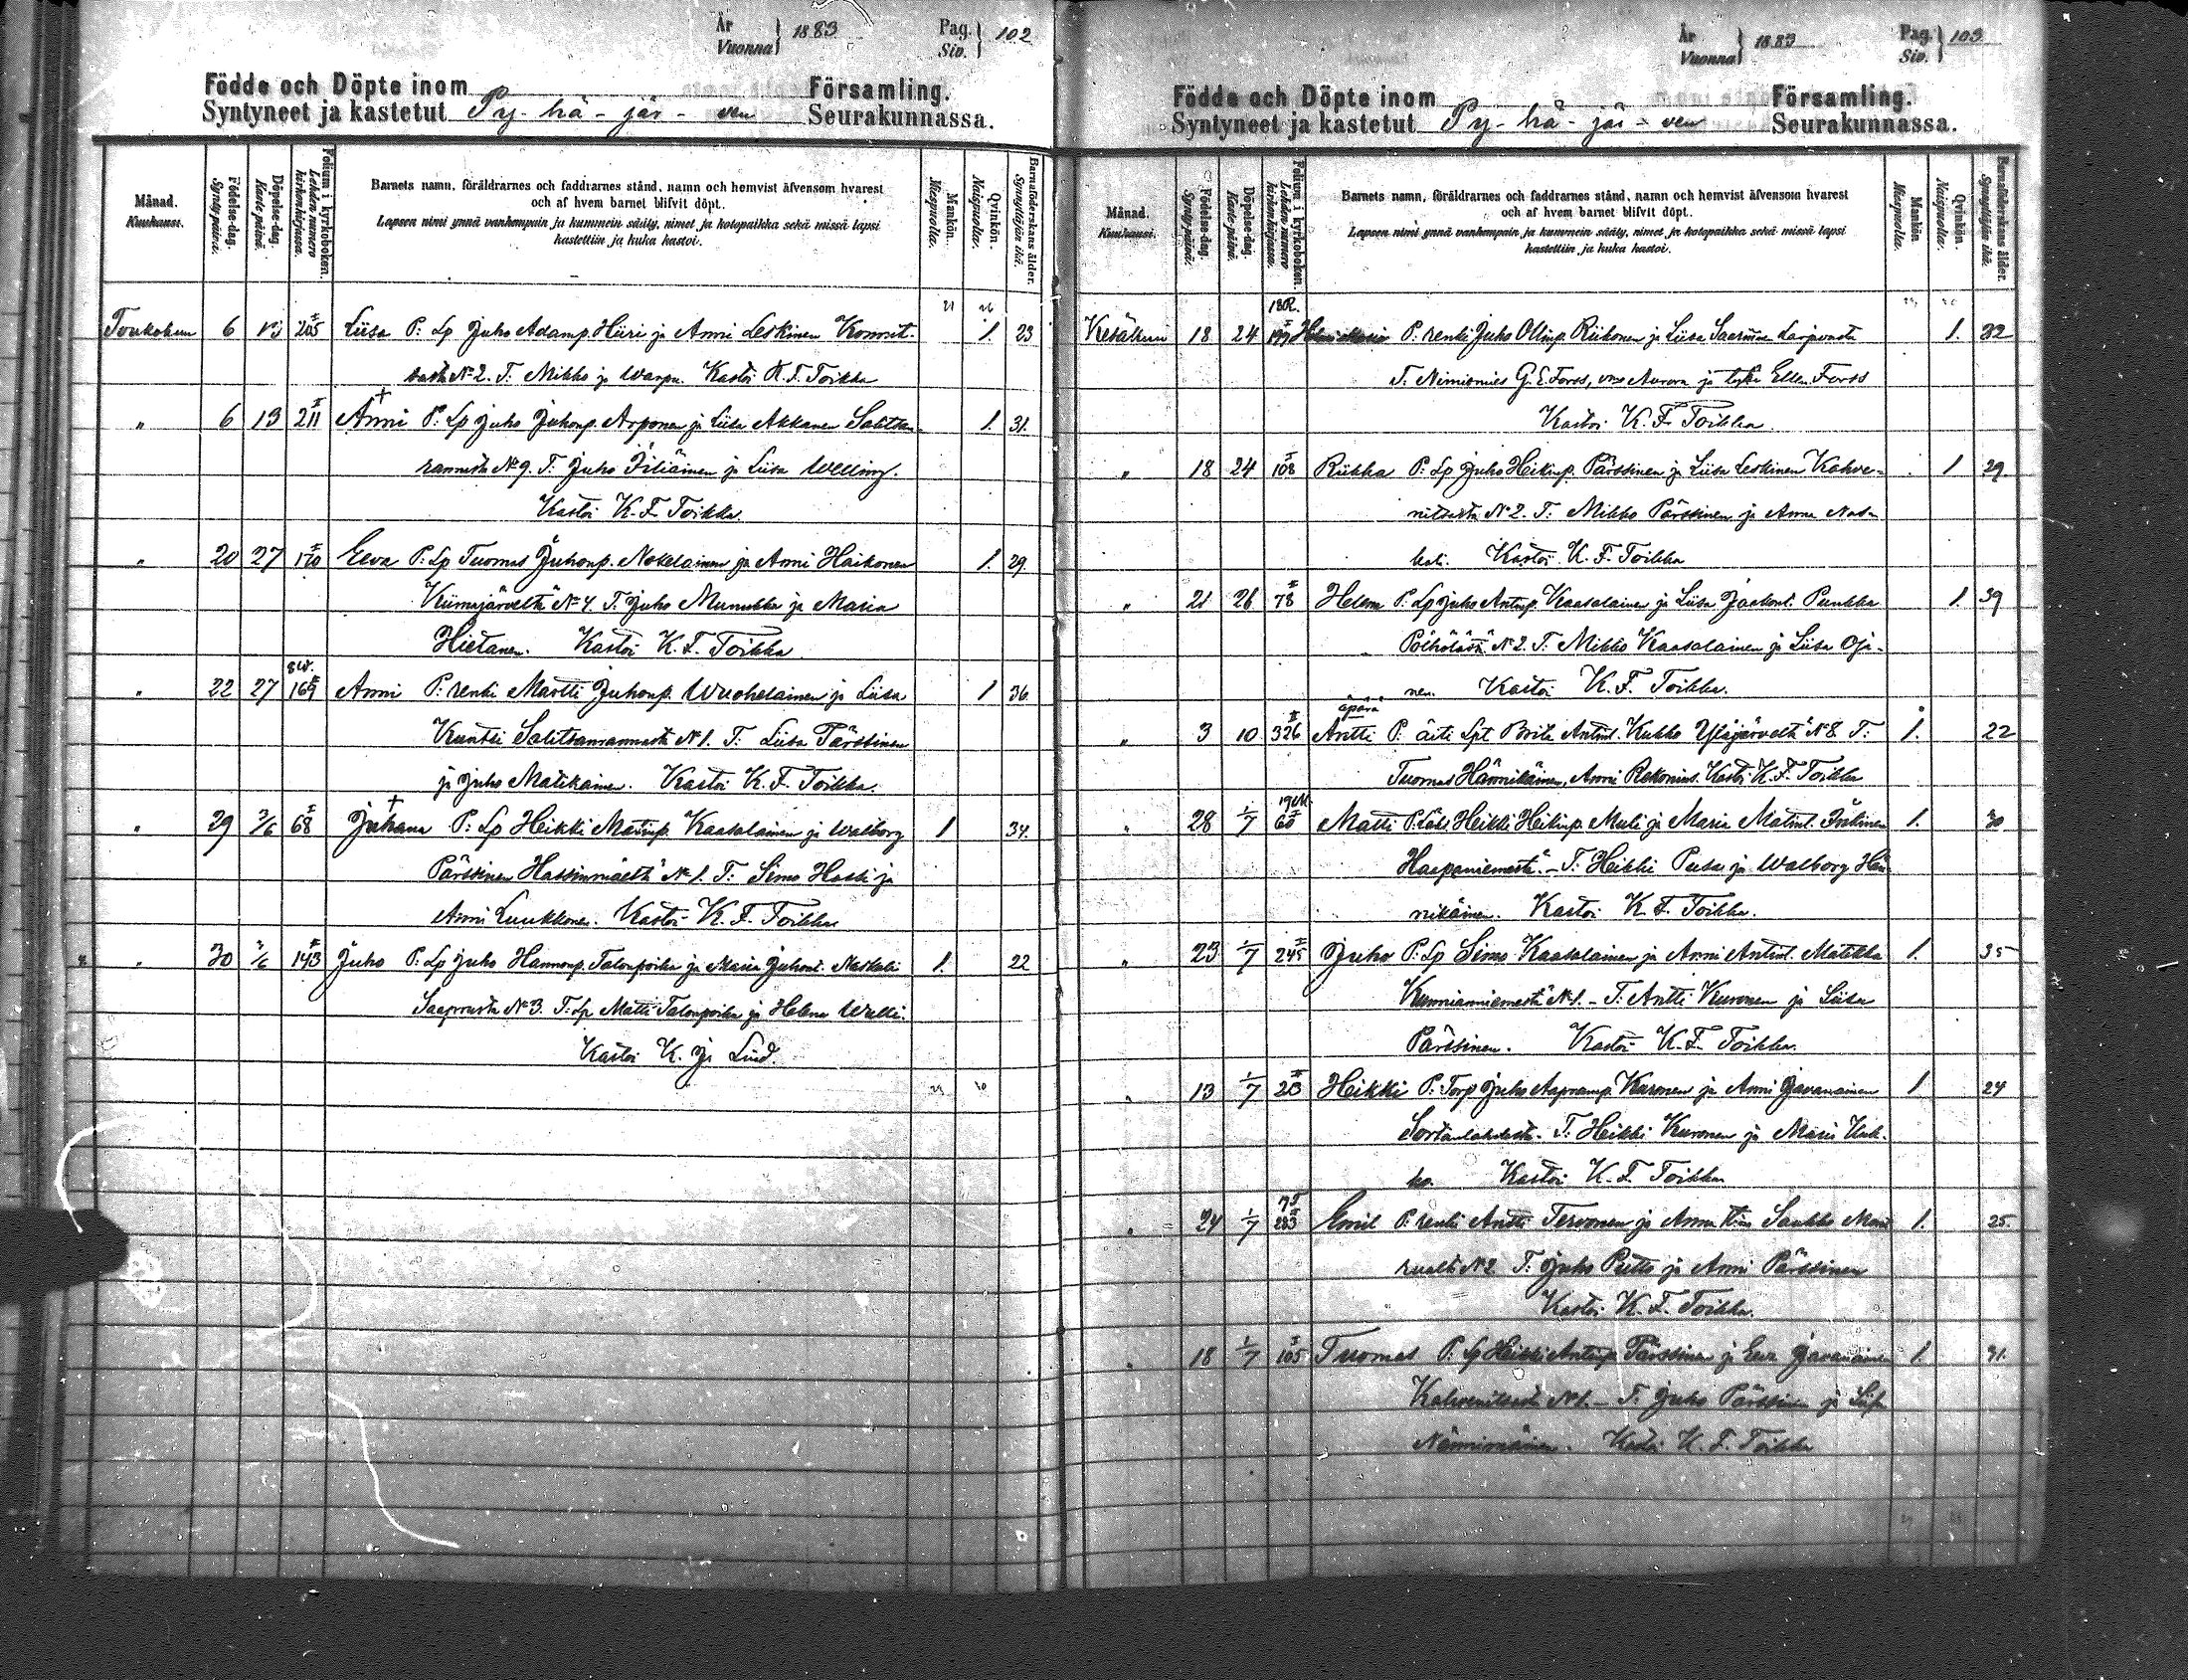 År
Vuonna } 1883 Pag.
Siv. } 102
Födde och Döpte inom Församling.
Syntyneet ja kastetut Py-hä-jär-ven Seurakunnassa.
Månad.
Kuukausi.
Födelse-dag.
Syntypäivä.
Döpelse-dag.
Kaste-päivä.
Folium i kyrkoboken.
Lehden numero
kirkonkirjassa.
Barnets namn, föräldrarnes och faddrarnes stånd, namn och hemvist äfvensom hvarest
och af hvem barnet blifvit döpt.
Lapsen nimi ynnä vanhempain ja kummein sääty, nimet ja kotopaikka sekä missä lapsi
kastettiin ja huka kastoi.
Mankön.
Miespuolia.
Qvinkön.
Naispuolia.
Barnaföderskans ålder.
Synnyttäjän ikä.
Toukokuu 6 13 I 205 Liisa P: Lp Juho Adamp. Hiiri ja Anni Leskinen Konnit- 1 23
sasta No 2. T: Mikko ja Warpu. Kastoi K. F. Toikka
" 6 13 I 211 Anni P: Lp Juho Juhonp. Arponen ja Liisa Akkanen Salitsan- 1 31.
rannasta No 9. T: Juho Jiliäinen ja Liisa Welling.
Kastoi K. F. Toikka.
" 20 27 I 170 Eeva P: Lp Tuomas Juhonp. Nokelainen ja Anni Haikonen 1 29
Kiimajärveltä No 4. T. Juho Munukka ja Maria
Hietanen. Kastoi K. F. Toikka
8W.
" 22 27 169 Anni P: renki Martti Juhonp. Wuohelainen ja Liisa 1 36.
Kuntsi Salitsanrannasta No 1. T: Liisa Pärssinen
ja Juho Matikainen. Kastoi K. F. Toikka.
" 29 3/6 I 68 Juhana P: Lp Heikki Mattinp. Kaasalainen ja Walborg 1 34.
Pärssinen Hassinmäestä No 1. T: Simo Hassi ja
Anni Luukkonen. Kastoi K. F. Toikka
" 30 3/6 143 Juho P: Lp Juho Hannonp. Talonpoika ja Maria Juhont. Naskali 1. 22
Saaprusta No 3. T: Lp Matti Talonpoika ja Helena Welli.
Kastoi K. J. Lind.
År
Vuonna } 1883 Pag.
Siv. } 103
Födde och Döpte inom Församling.
Syntyneet ja kastetut Py-hä-jär-ven Seurakunnassa.
Månad.
Kuukausi.
Födelse-dag.
Syntypäivä.
Döpelse-dag.
Kaste-päivä.
Folium i kyrkoboken.
Lehden numero
kirkonkirjassa.
Barnets namn, föräldrarnes och faddrarnes stånd, namn och hemvist äfvensom hvarest
och af hvem barnet blifvit döpt.
Lapsen nimi ynnä vanhempain ja kummein sääty, nimet ja kotopaikka sekä missä lapsi
kastettiin ja huka kastoi.
Mankön
Miespuolia.
Qvinkön.
Naispuolia.
Barnaföderskans ålder.
Synnyttäjän ikä.
18R.
Kesäkuu 18 24 I 199 Maria P: renki Juho Olinp. Riikonen ja Liisa 1. 32
T. Nimismies G. E. Forss, Aurora ja Ellen Forss
Kastoi K. F. Toikka.
" 18 24 I 108 Riikka P: Lp Juho Heikinp. Pärssinen ja Liisa Leskinen Kahve- 1 29
nitsasta No 2. T: Mikko Pärssinen ja Anna Nas-
kali. Kastoi K. F. Toikka
" 21 26 I 78 Helena P: Lp Juho Antinp. Kaasalainen ja Liisa Jaakont. Punkka 1. 39
Poihölässä No 2. T: Mikko Kaasalainen ja Liisa Oja-
nen. Kastoi K. F. Toikka.
äpärä
" 3 10 II 326 Antti P: äiti Lpt Brita Antint. Kukko Yläjärveltä No 8. T: 1. 22
Tuomas Hännikäinen, Anni Rekonius. Kastoi K. F. Toikka
19M.
" 28 1/7 I 60 Matti P: Heikki Heikinp. Muli ja Maria Matint. 1. 30
Haapaniemestä. - T: Heikki Pusa ja Walborg Hän-
nikäinen. Kastoi K. F. Toikka.
" 23 1/7 I 245 Juho P: Lp Simo Kaasalainen ja Anni Antint. Matikka 1. 35
Kunnianniemestä No 1. - T: Antti Kuronen ja Liisa
Pärssinen. Kastoi K. F. Toikka.
" 13 1/7 II 23 Heikki P: Torp Juho Aapramp. Kuronen ja Anni Javanainen 1 24
Sortanlahdesta. T: Heikki Kuronen ja Maria Kuk-
ko. Kastoi K. F. Toikka
" 24 1/7 283 Emil P: renki Antti Tervonen ja Anna Saukko 1. 25.
No 2. T: Juho Putto ja Anni Pärssinen
Kastoi K. F. Toikka.
" 18 1/7 I 105 Tuomas P: Lp Heikki Antinp. Pärssinen ja Eeva Javanainen 1. 31.
Kahvenitsasta No 1. - T: Juho Pärssinen ja Liisa
Kastoi K. F. Toikka